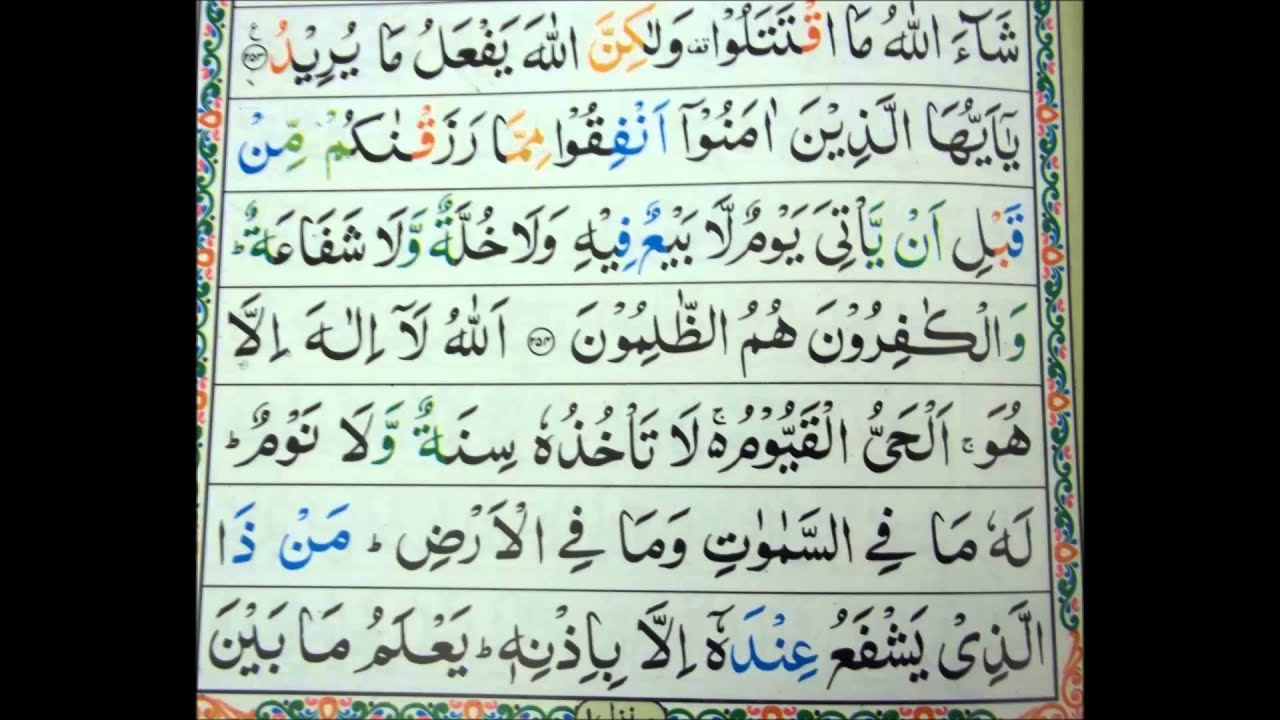 شَآءَ اللّٰهُ مَا اقْتَتَلُوْا قف وَلٰكِنَّ اللّٰهَ يَفْعَلُ مَا يُرِيْدُ ﴿۲۵۳﴾ ع
يٰٓاَيُّهَا الَّذِيْنَ اٰمَنُوْٓا اَنْفِقُوْا مِمَّا رَزَقْنٰكُمْ مِّنْ
قَبْلِ اَنْ يَّاْتِىَ يَوْمٌ لَّا بَيْعٌ فِيْهِ وَلَا خُلَّةٌ وَّلَا شَفَاعَةٌ ؕ
وَالْكٰفِرُوْنَ هُمُ الظّٰلِمُوْنَ ﴿۲۵۴﴾ اَللّٰهُ لَآ اِلٰهَ اِلَّا
هُوَ ۚ اَلْحَىُّ الْقَيُّوْمُ ە ۚ لَا تَاْخُذُهٗ سِنَةٌ وَّلَا نَوْمٌ ؕ
لَهٗ مَا فِى السَّمٰوٰتِ وَمَا فِى الْاَرْضِ ؕ مَنْ ذَا
الَّذِىْ يَشْفَعُ عِنْدَهٗٓ اِلَّا بِاِذْنِهٖ ؕ يَعْلَمُ مَا بَيْنَ